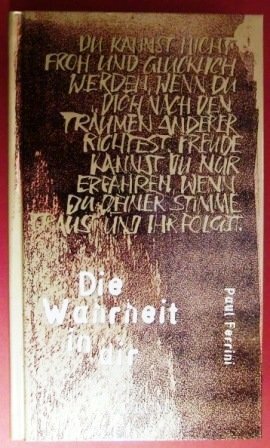 DU KANNST NICHT
FROH UND GLÜCKLICH
WERDEN, WENN DU
DICH NACH DEN
TRÄUMEN ANDERER
RICHTEST. FREUDE
KANNST DU NUR
ERFAHREN, WENN
DU DEINER STIMME
TRAUST UND IHR FOLGST.
Die
Wahrheit
in dir
Paul Ferrini